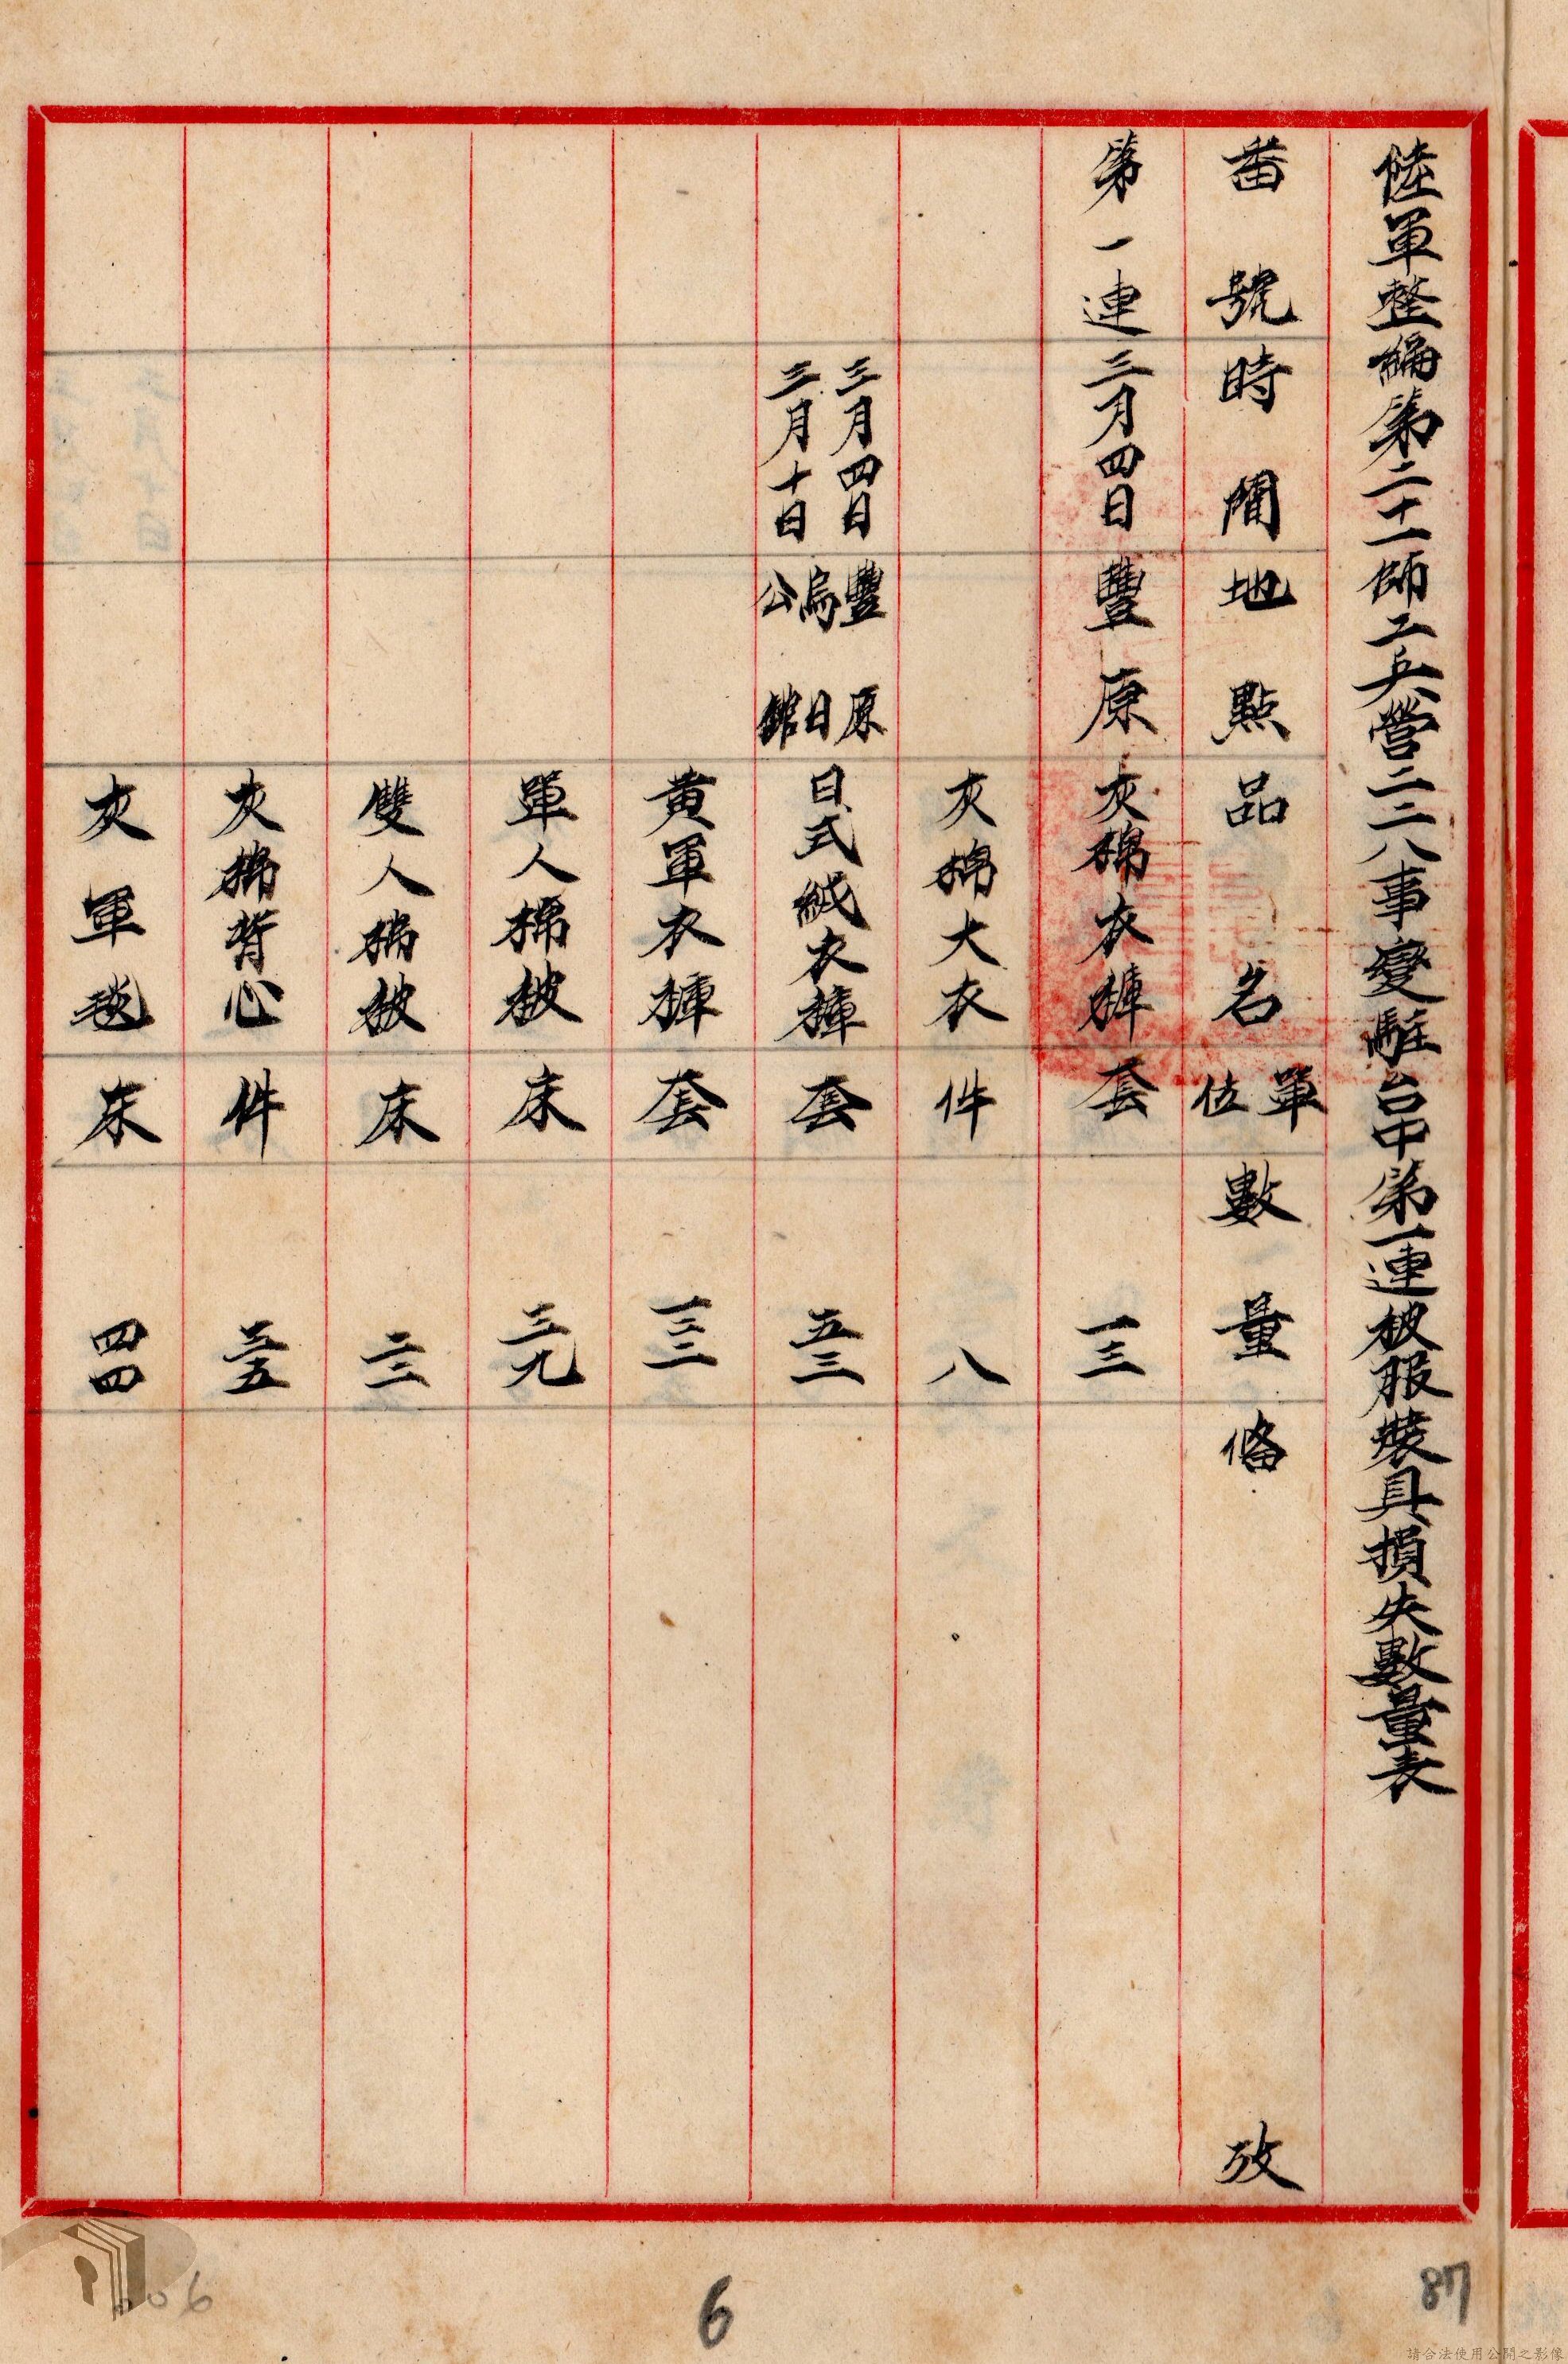 陸軍整編第二十一師工兵營二二八事變駐台中第一連被服裝具損失數量表
番號 時間 地點 品名 單位 數量 備攷
第一連 三月四日 豐原 灰棉衣褲 套 一三
灰棉大衣 件 八
三月四日 豐原
三月十日 烏日公館
日式絨衣褲 套 五三
黃軍衣褲 套 一三二
單人棉被 床 三九
雙人棉被 床 二三
灰棉背心 件 三五
灰軍毯 床 四四
006
6
87
請合法使用公開之影像